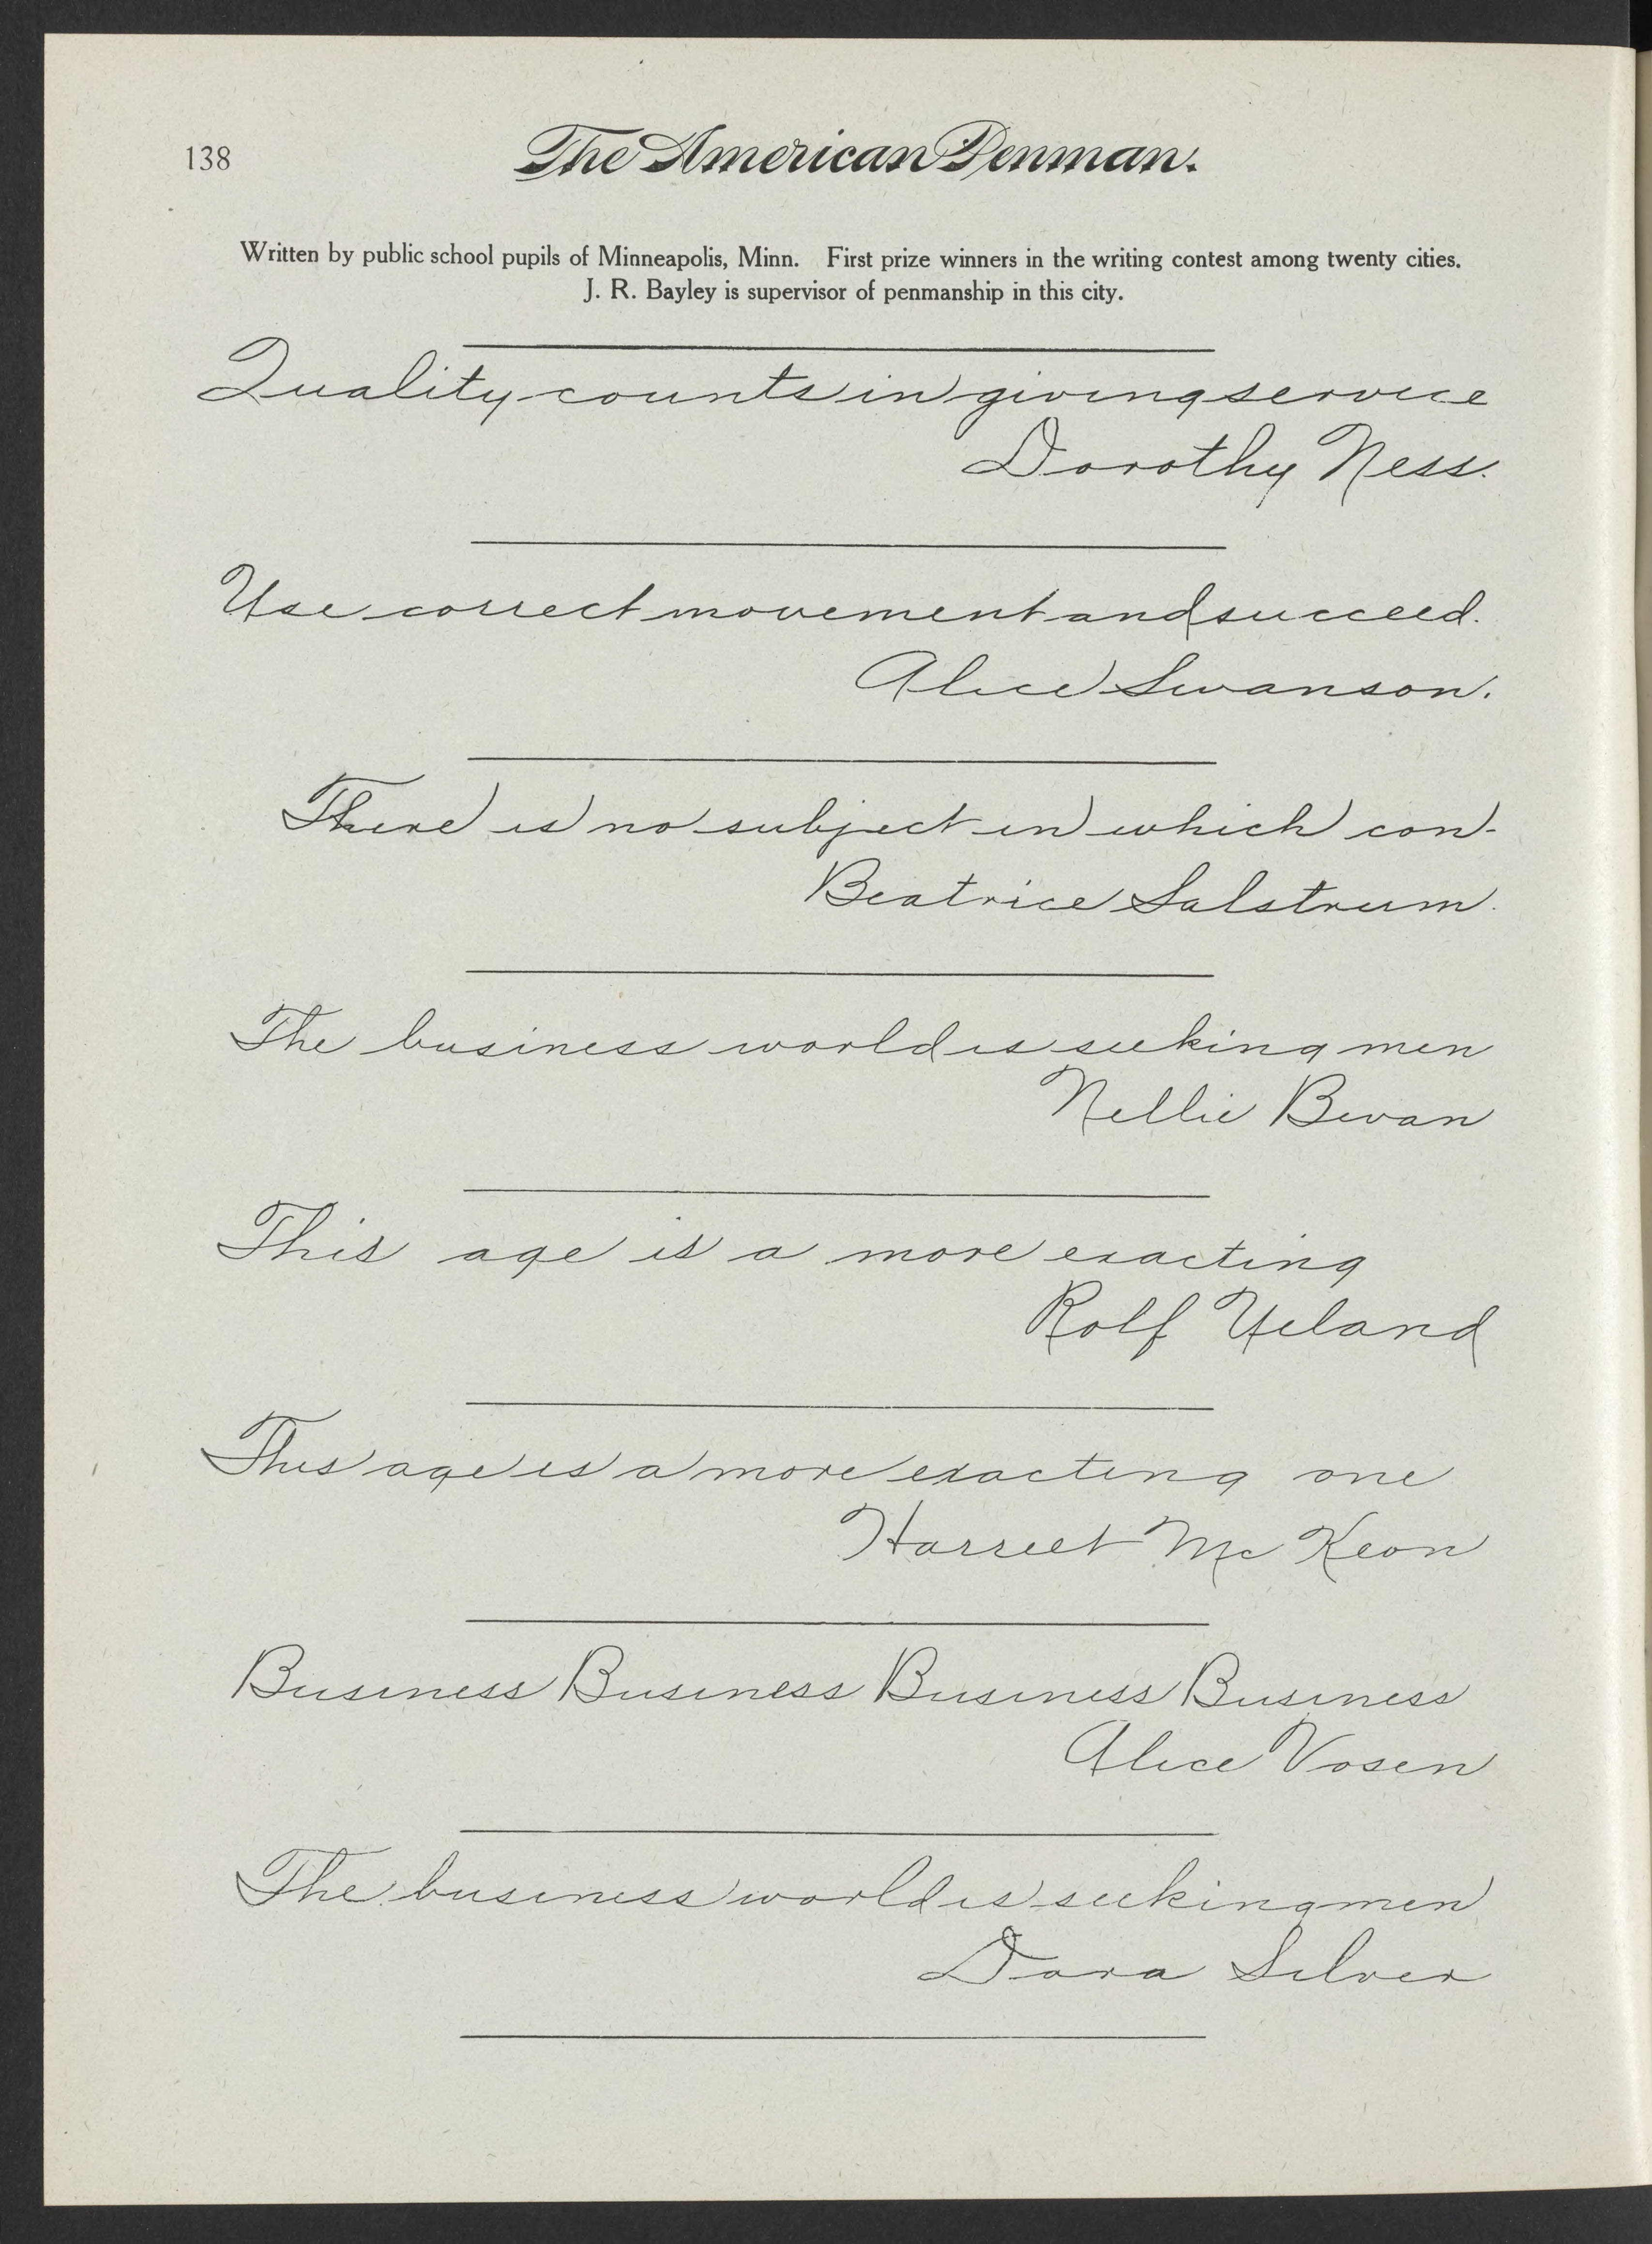 138
The American Penman.
Written by public school pupils of Minneapolis, Minn. First prize winners in the writing contest among twenty cities.
J. R. Bayley is supervisor of penmanship in this city.
Quality counts in giving service
Dorothy Ness.
Use correct movement and succeed.
Alice Swanson.
There is no subject in which con-
Beatrice Salstrum.
The business world is seeking men
Nellie Bevan
This age is a more exacting
Rolf Ueland
This age is a more exacting one
Harriet Mc Keon
Business Business Business Business
Alice Vosen
The business world is seeking men
Dora Silver